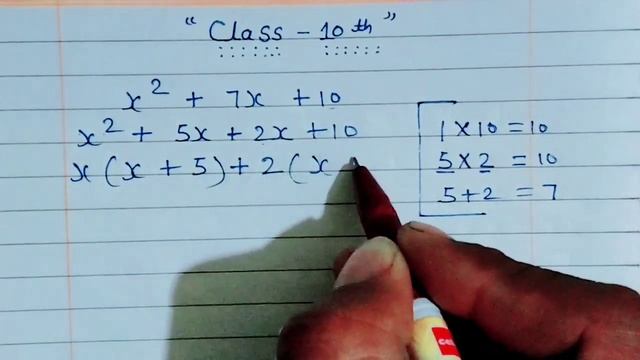 “Class - 10th”
x² + 7x + 10
x² + 5x + 2x + 10
x (x + 5) + 2 (x
1 × 10 = 10
5 × 2 = 10
5 + 2 = 7